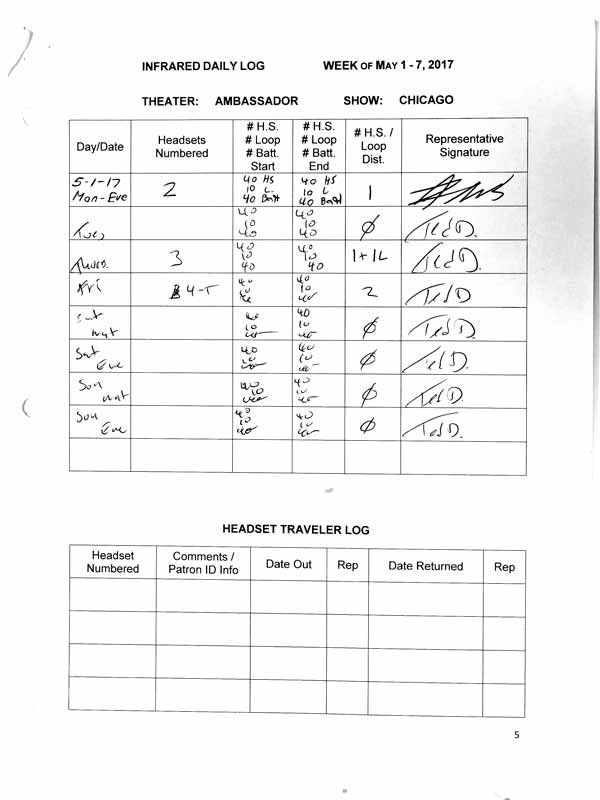 INFRARED DAILY LOG WEEK OF MAY 1 - 7, 2017
THEATER: AMBASSADOR SHOW: CHICAGO
Day/Date
Headsets
Numbered
# H.S.
# Loop
# Batt.
Start
# H.S.
# Loop
# Batt.
End
# H.S. /
Loop
Dist.
Representative
Signature
5-1-17
Mon-Eve
2
40 HS
10 L.
40 Batt
40 HS
10 L
40 Batt
1
Tues
40
10
40
40
10
40
Ø
Ted D.
Thurs.
3
40
10
40
40
10
40
1 + 1L
Ted D.
Fri
4-T
40
10
40
10
2
Ted D
Sat
mat
40
10
40
10
Ø
Ted D.
Sat
Eve
40
10
40
10
Ø
Ted D.
Sun
mat
40
10
40
10
Ø
Ted D.
Sun
Eve
40
10
40
40
10
Ø
Ted D.
HEADSET TRAVELER LOG
Headset
Numbered
Comments /
Patron ID Info
Date Out
Rep
Date Returned
Rep
5